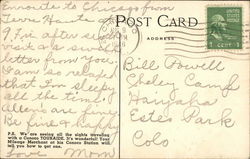 Enroute to Chicago from
Terre Haute
9, I'm after
visit & a swell
letter from you
I am so relaxed
that I'm sleepy
all the time.
Allens are fine
Be fine &
P.S. We are seeing all the sights traveling
with a Conoco TOURAIDE. It's wonderful! Your
Mileage Merchant at his Conoco Station will
tell you how to get one.
Love Mom
POST CARD
ADDRESS
1 CENT 1
Bill Howell
Cheley Camp
Estes Park
Colo